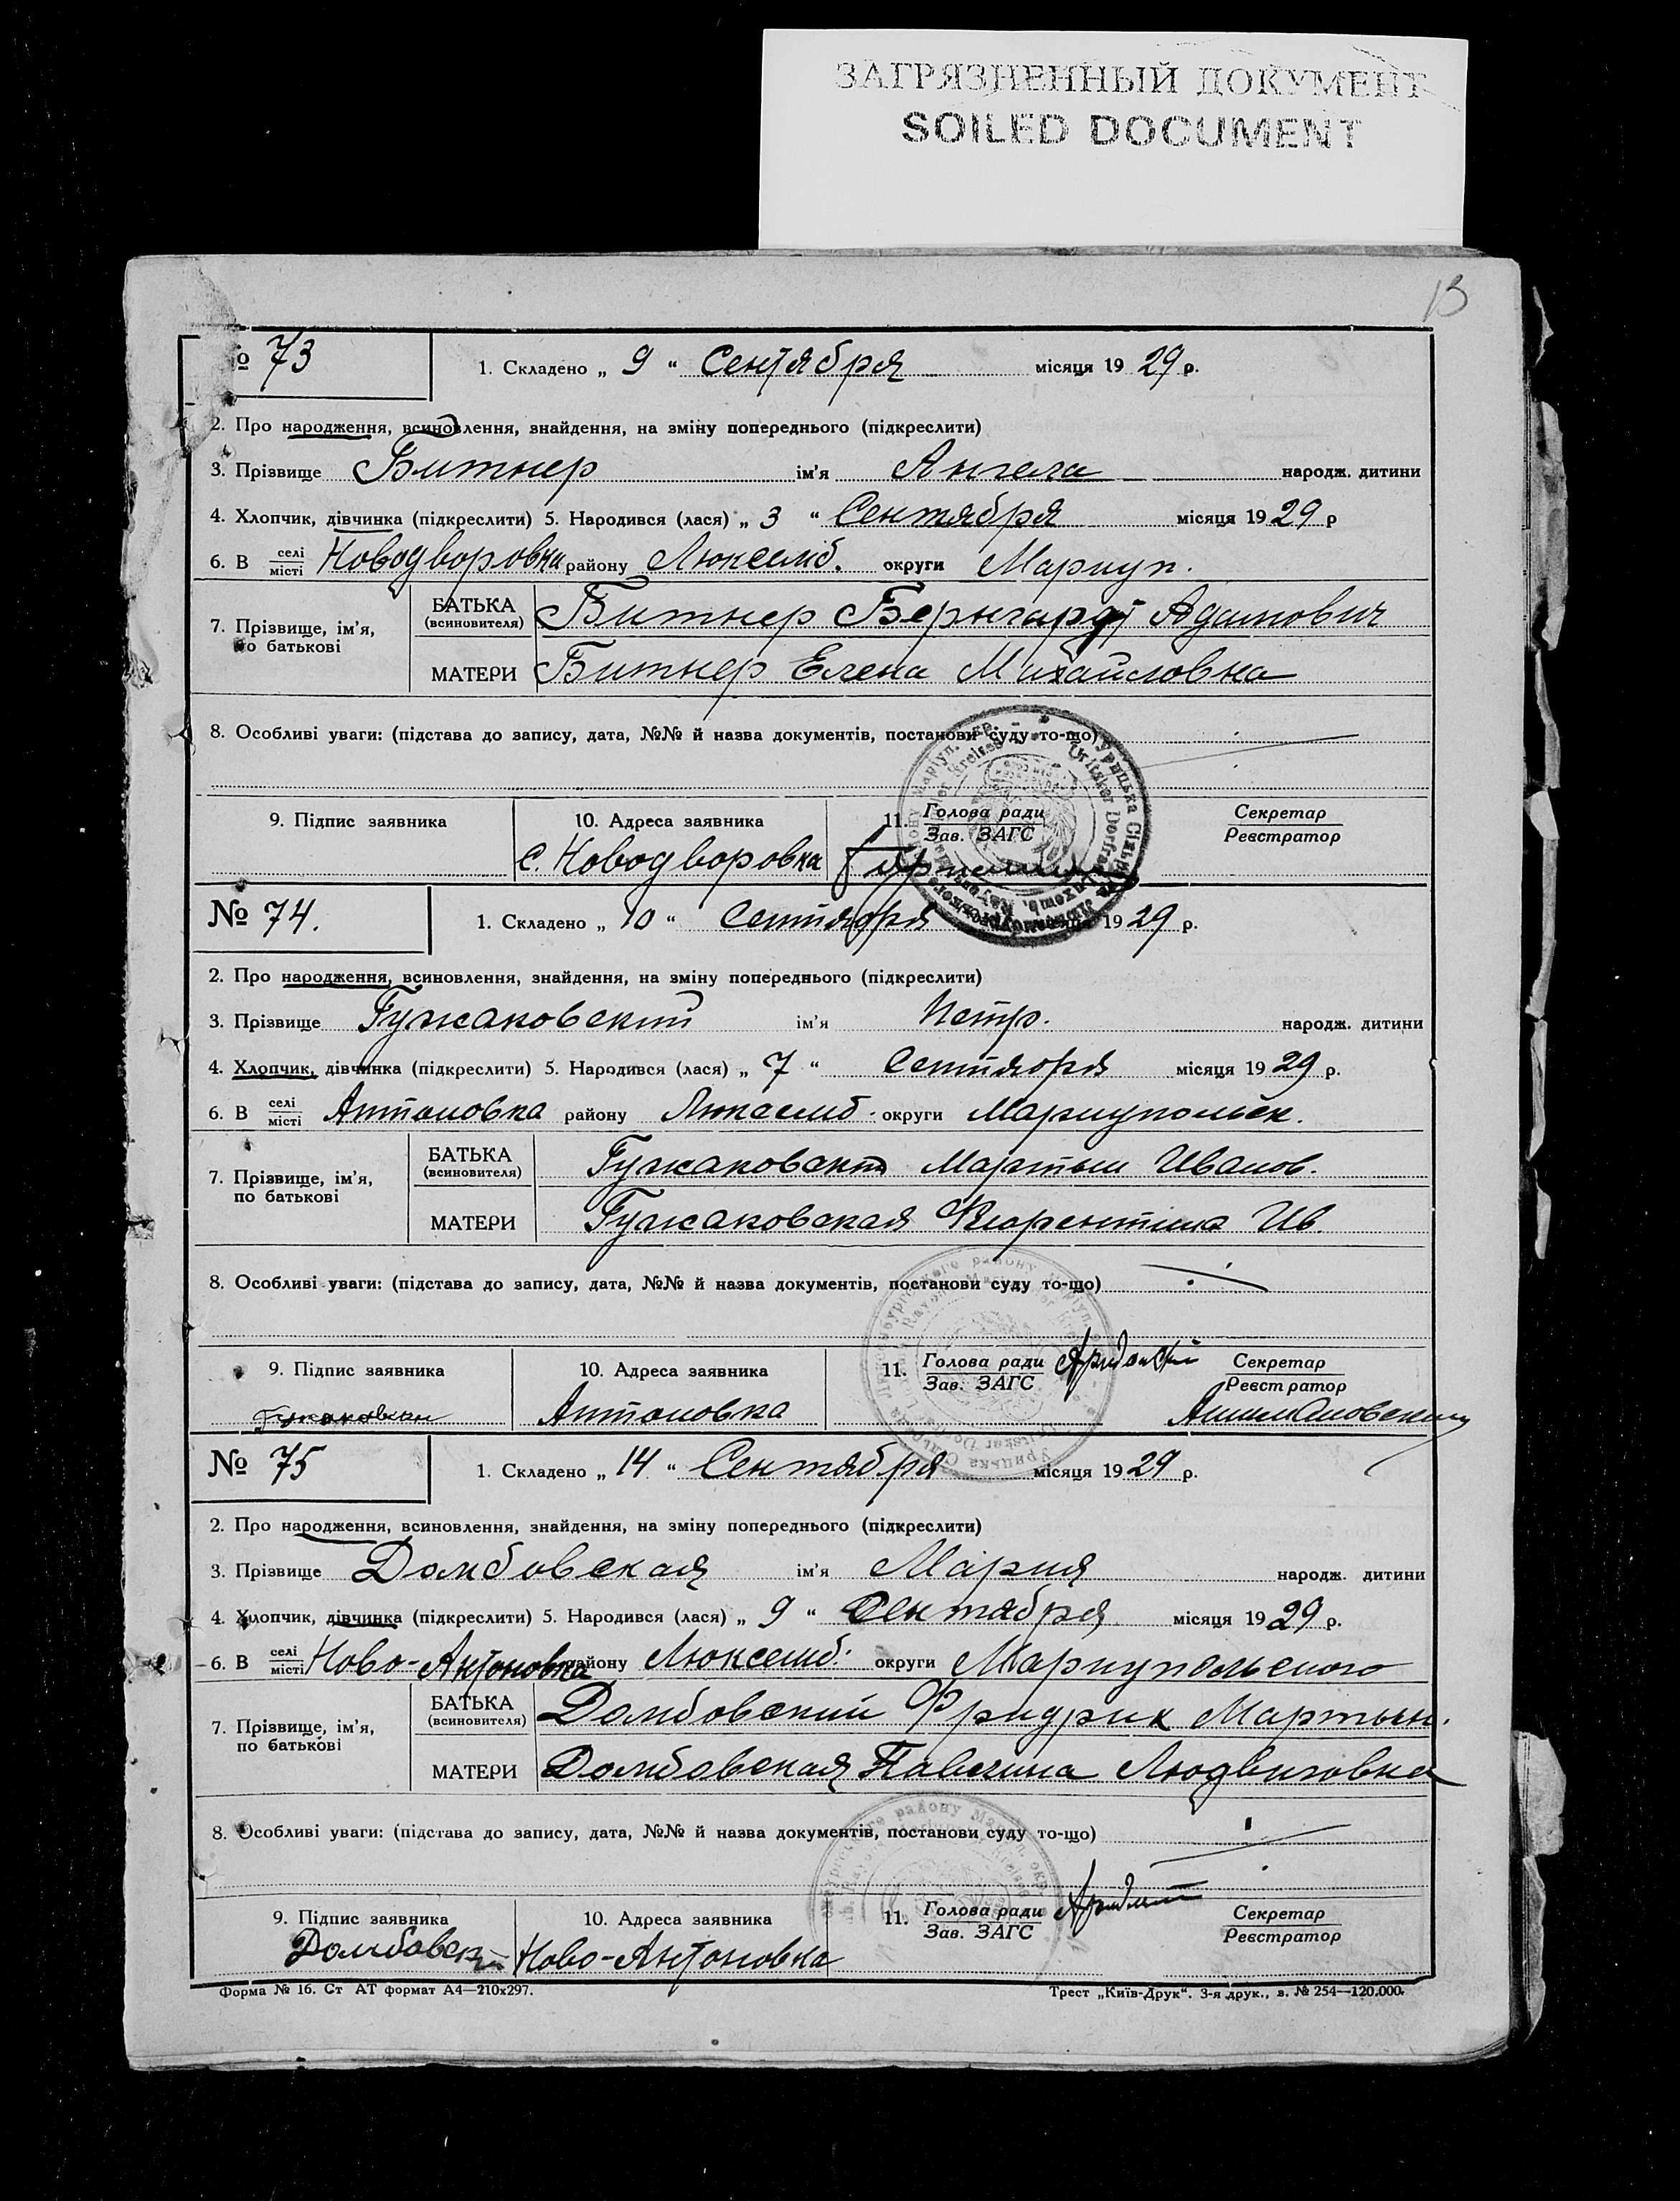 ЗАГРЯЗНЕННЫЙ ДОКУМЕНТ
SOILED DOCUMENT
13
№ 73 1. Складено „ 9 “ Сентября місяця 19 29 р.
2. Про народження, всиновлення, знайдення, на зміну попереднього (підкреслити)
3. Прізвище Битнер ім'я Ангела народж. дитини
4. Хлопчик, дівчинка (підкреслити) 5. Народився (лася) „ 3 “ Сентября місяця 19 29 р
6. В селі/місті Новодворовка району Люксемб. округи Мариуп.
7. Прізвище, ім'я, по батькові
БАТЬКА (всиновителя) Битнер Бернгард Адамович
МАТЕРИ Битнер Елена Михайловна
8. Особливі уваги: (підстава до запису, дата, №№ й назва документів, постанови суду то-що)
9. Підпис заявника 10. Адреса заявника 11. Голова ради/Зав. ЗАГС Секретар/Реєстратор
с. Новодворовка
№ 74. 1. Складено „ 10 “ Сентября 19 29 р.
2. Про народження, всиновлення, знайдення, на зміну попереднього (підкреслити)
3. Прізвище Гужаковский ім'я Петр. народж. дитини
4. Хлопчик, дівчинка (підкреслити) 5. Народився (лася) „ 7 “ Сентября місяця 19 29 р.
6. В селі/місті Антоновка району Люксемб. округи Мариупольск.
7. Прізвище, ім'я, по батькові
БАТЬКА (всиновителя) Гужаковский Мартын Иванов.
МАТЕРИ Гужаковская Ив.
8. Особливі уваги: (підстава до запису, дата, №№ й назва документів, постанови суду то-що)
9. Підпис заявника 10. Адреса заявника 11. Голова ради/Зав. ЗАГС Секретар/Реєстратор
Антоновка
№ 75 1. Складено „ 14 “ Сентября місяця 19 29 р.
2. Про народження, всиновлення, знайдення, на зміну попереднього (підкреслити)
3. Прізвище Домбовская ім'я Мария народж. дитини
4. Хлопчик, дівчинка (підкреслити) 5. Народився (лася) „ 9 “ Сентября місяця 19 29 р.
6. В селі/місті Ново-Антоновка району Люксемб. округи Мариупольского
7. Прізвище, ім'я, по батькові
БАТЬКА (всиновителя) Домбовский Фридрих Мартын.
МАТЕРИ Домбовская Павлина Людвиговна
8. Особливі уваги: (підстава до запису, дата, №№ й назва документів, постанови суду то-що)
9. Підпис заявника 10. Адреса заявника 11. Голова ради/Зав. ЗАГС Секретар/Реєстратор
Ново-Антоновка
Форма № 16. Ст АТ формат А4—210х297. Трест „Київ-Друк“. 3-я друк., в. № 254—120.000.